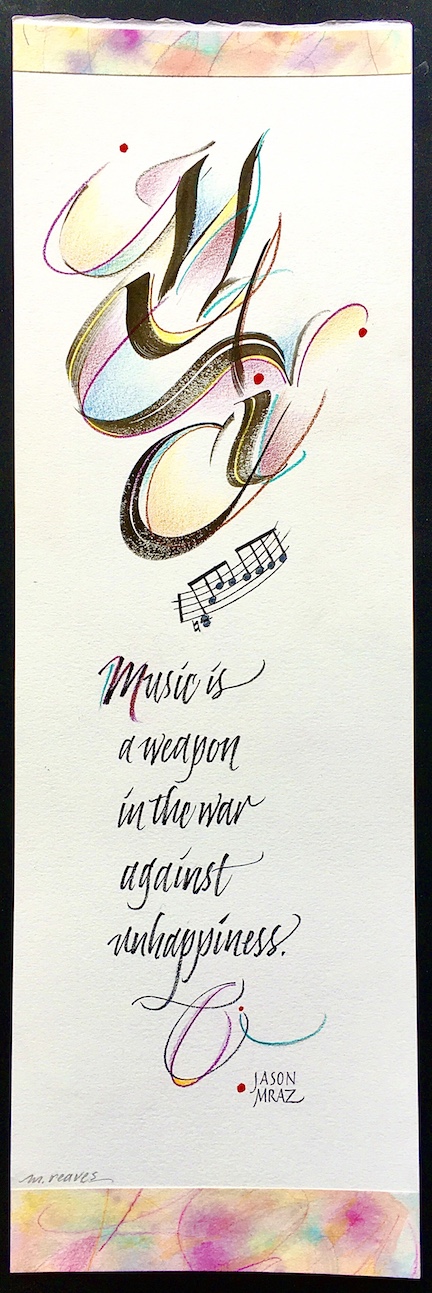 Music is
a weapon
in the war
against
unhappiness.
JASON
MRAZ
m. reaves